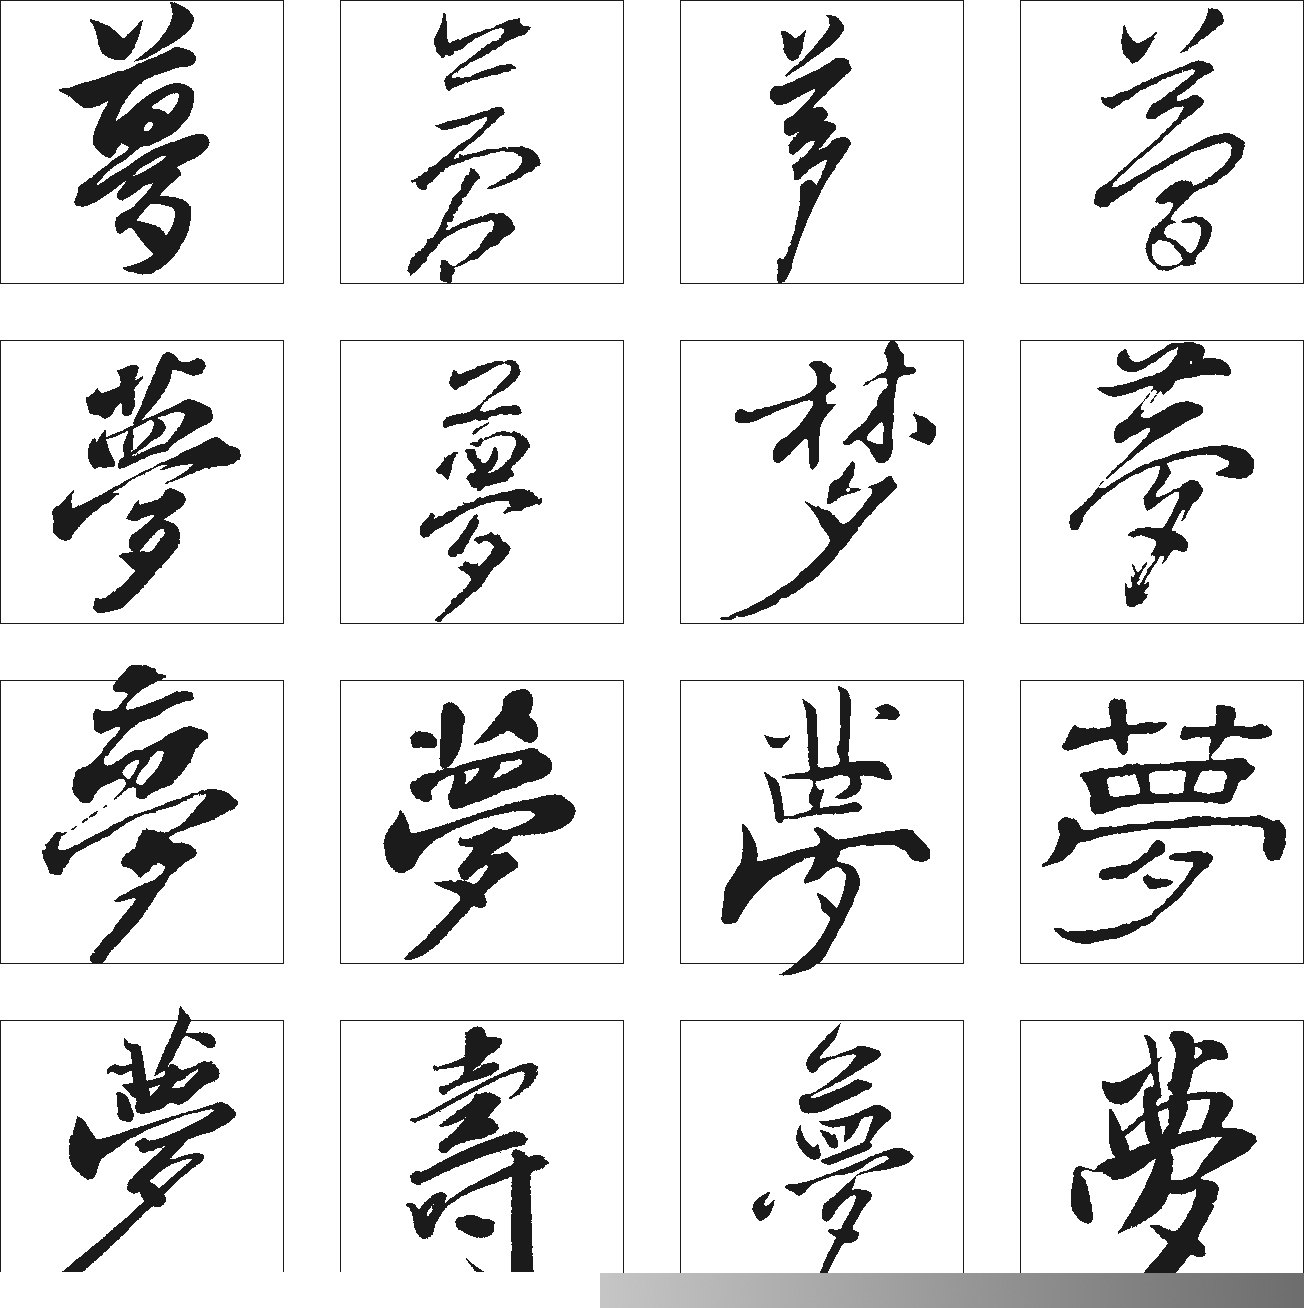 夢 夢 夢 夢
夢 夢 梦 夢
夢 夢 夢 夢
夢 壽 夢 夢